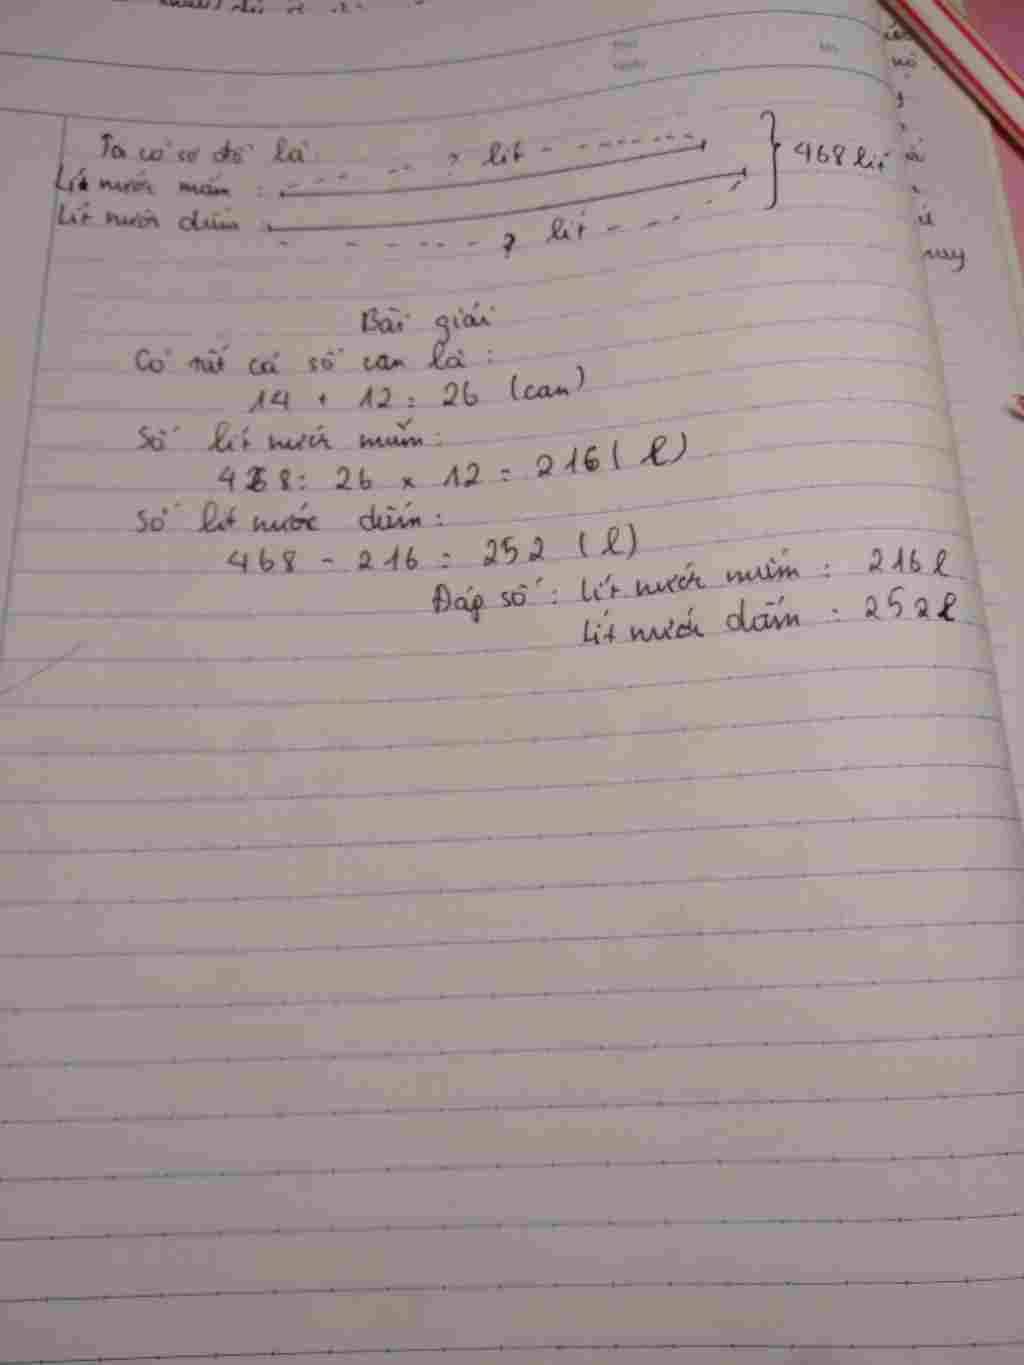 Ta có sơ đồ là:
Lít nước mắm : ? lít
468 lít
Lít nước dấm ? lít
Bài giải
Có tất cả số can là :
14 + 12 = 26 (can)
Số lít nước mắm:
468 : 26 x 12 = 216 ( l )
Số lít nước dấm:
468 - 216 = 252 ( l )
Đáp số : lít nước mắm : 216 l
lít nước dấm : 252 l